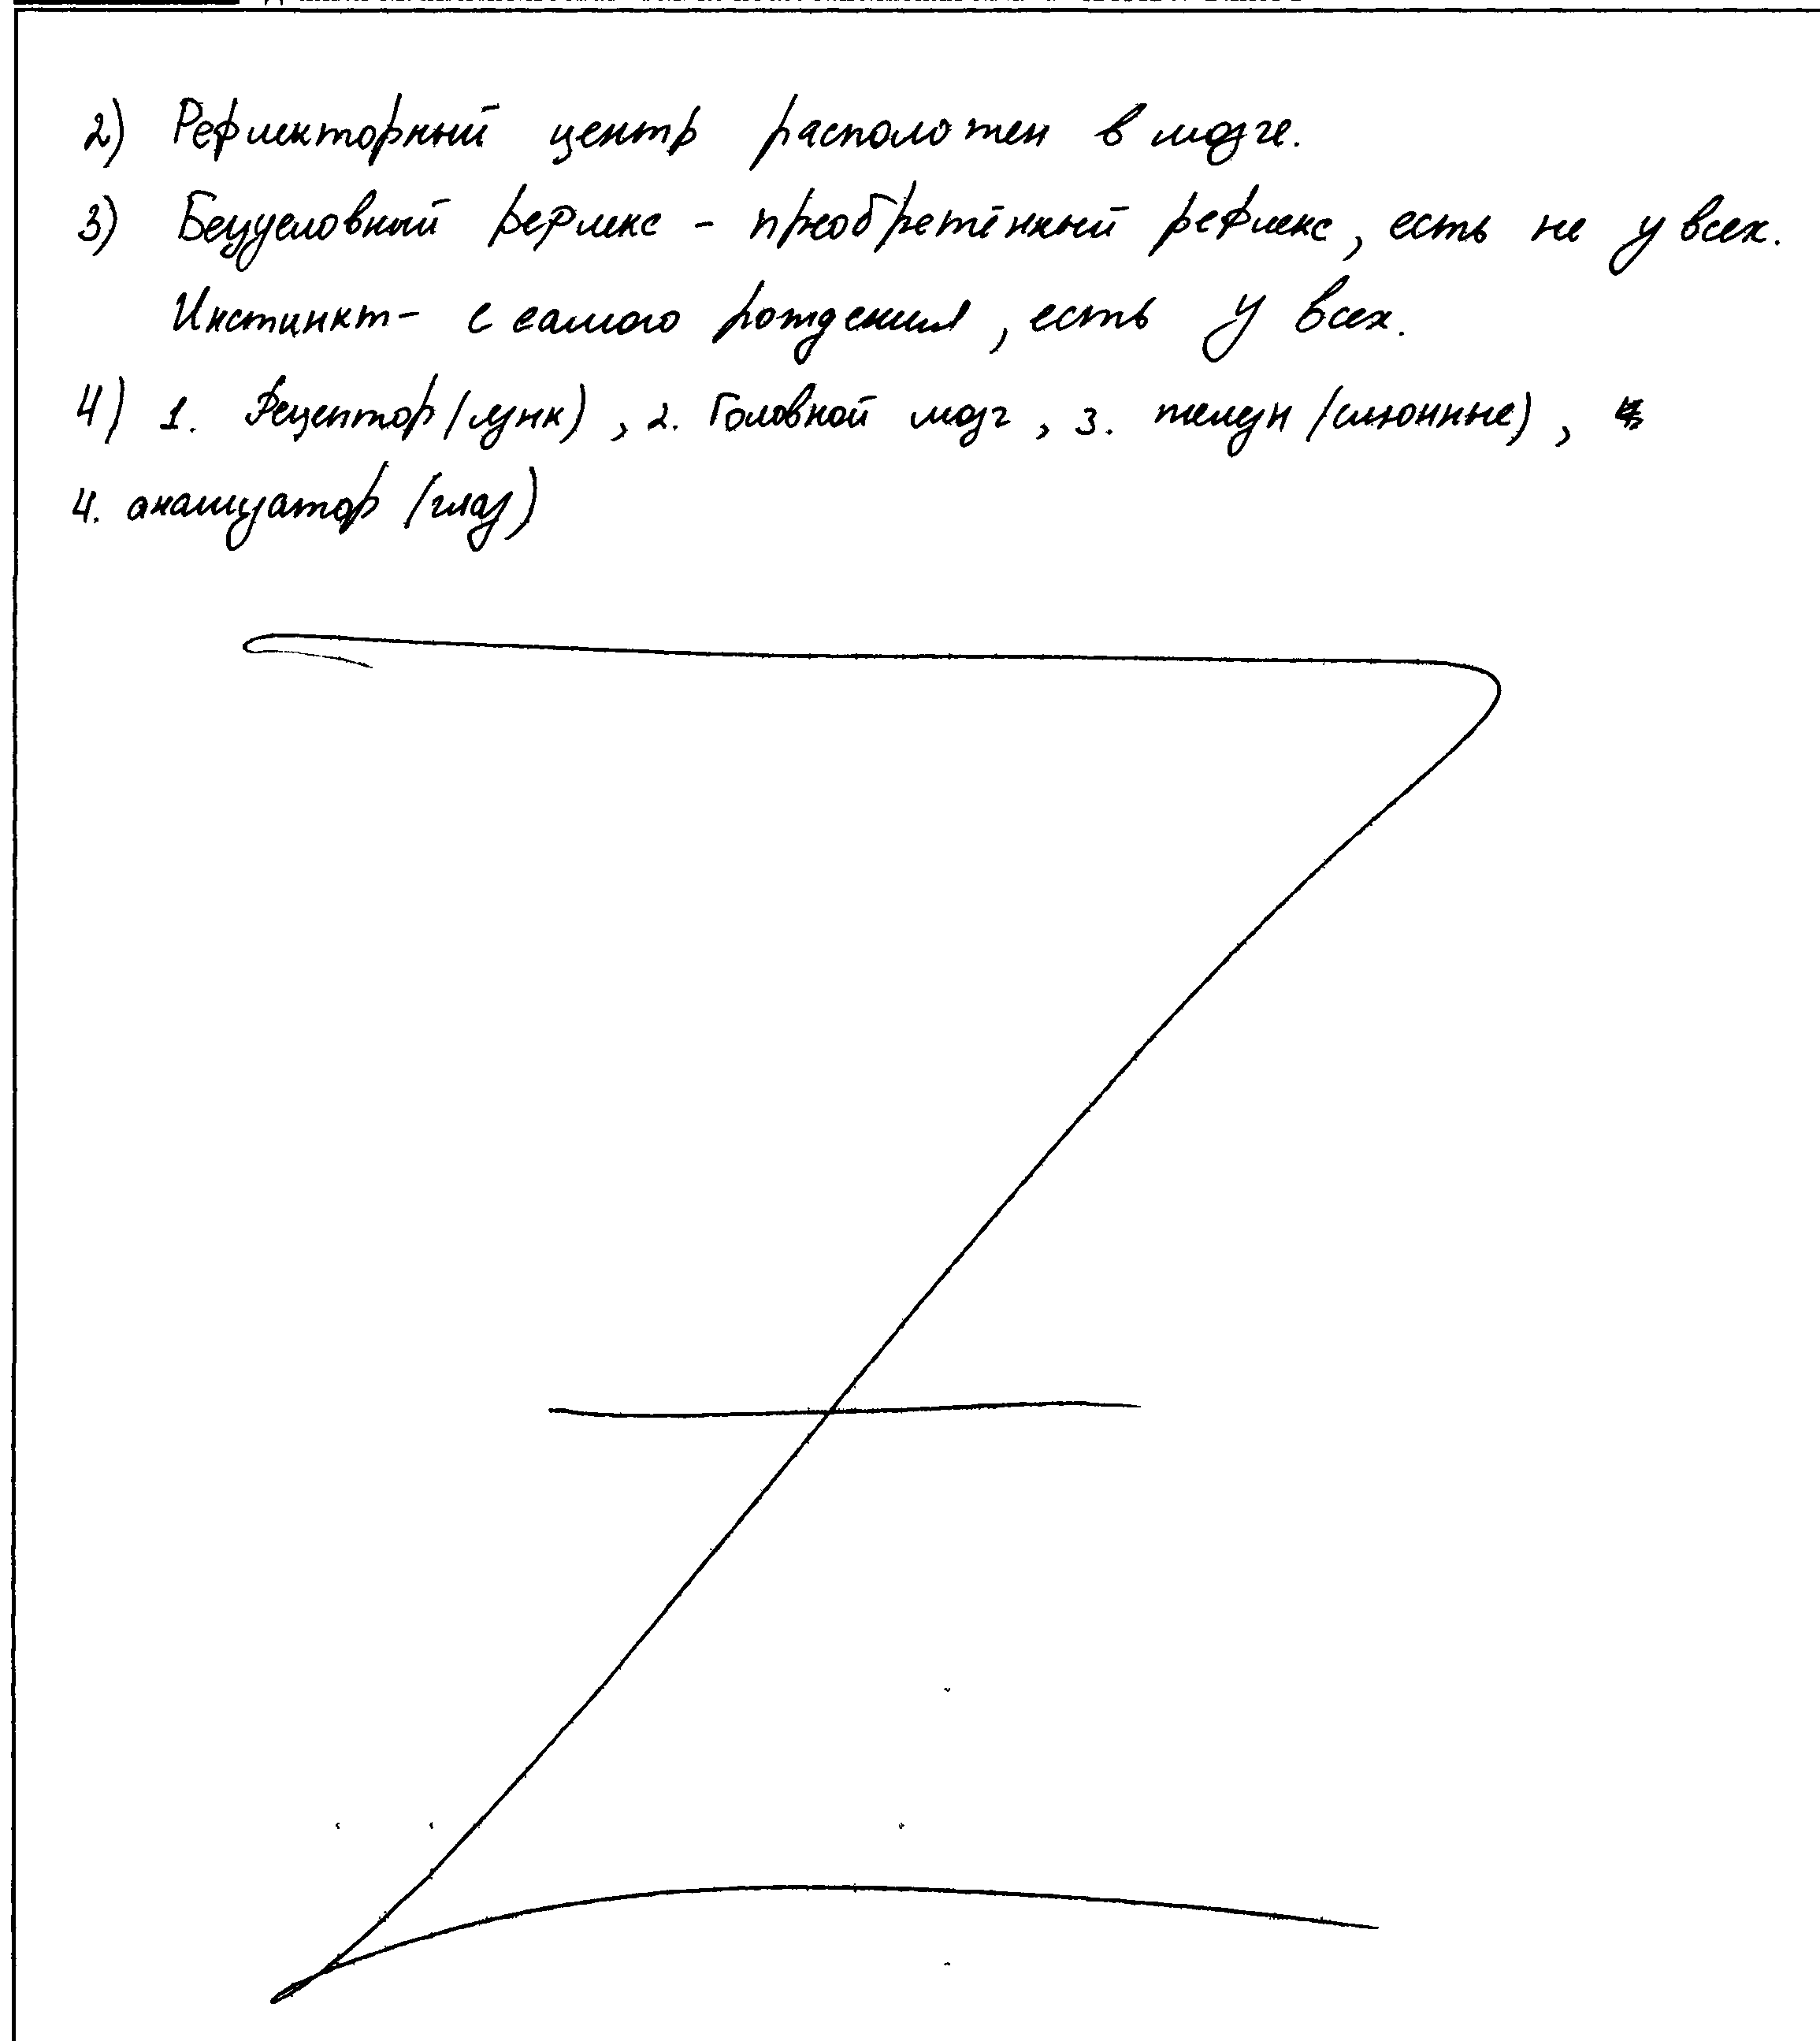 2) Рефлекторный центр расположен в мозге.
3) Безусловный рефлекс - преобретённый рефлекс, есть не у всех.
Инстинкт- с самого рождения, есть у всех.
4) 1. Рецептор (), 2. Головной мозг, 3. (слюнные),
4. анализатор (глаз)